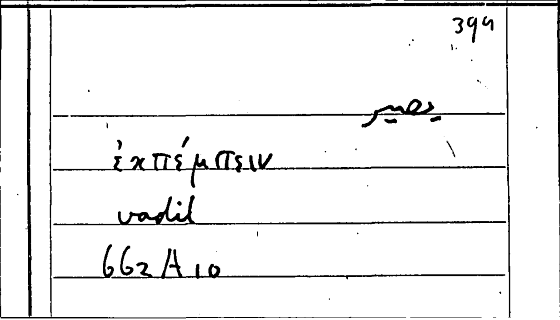 394
ἐκπέμπειν
vadil
662 A 10